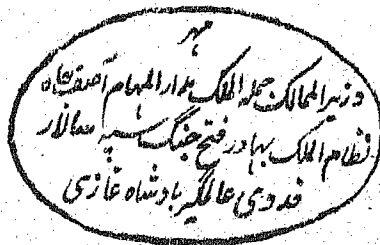 مہر
وزیر الممالک جملة الملک مدار المہام آصف جاہ
نظام الملک بہادر فتح جنگ سپہ سالار
فدوی عالمگیر بادشاہ غازی